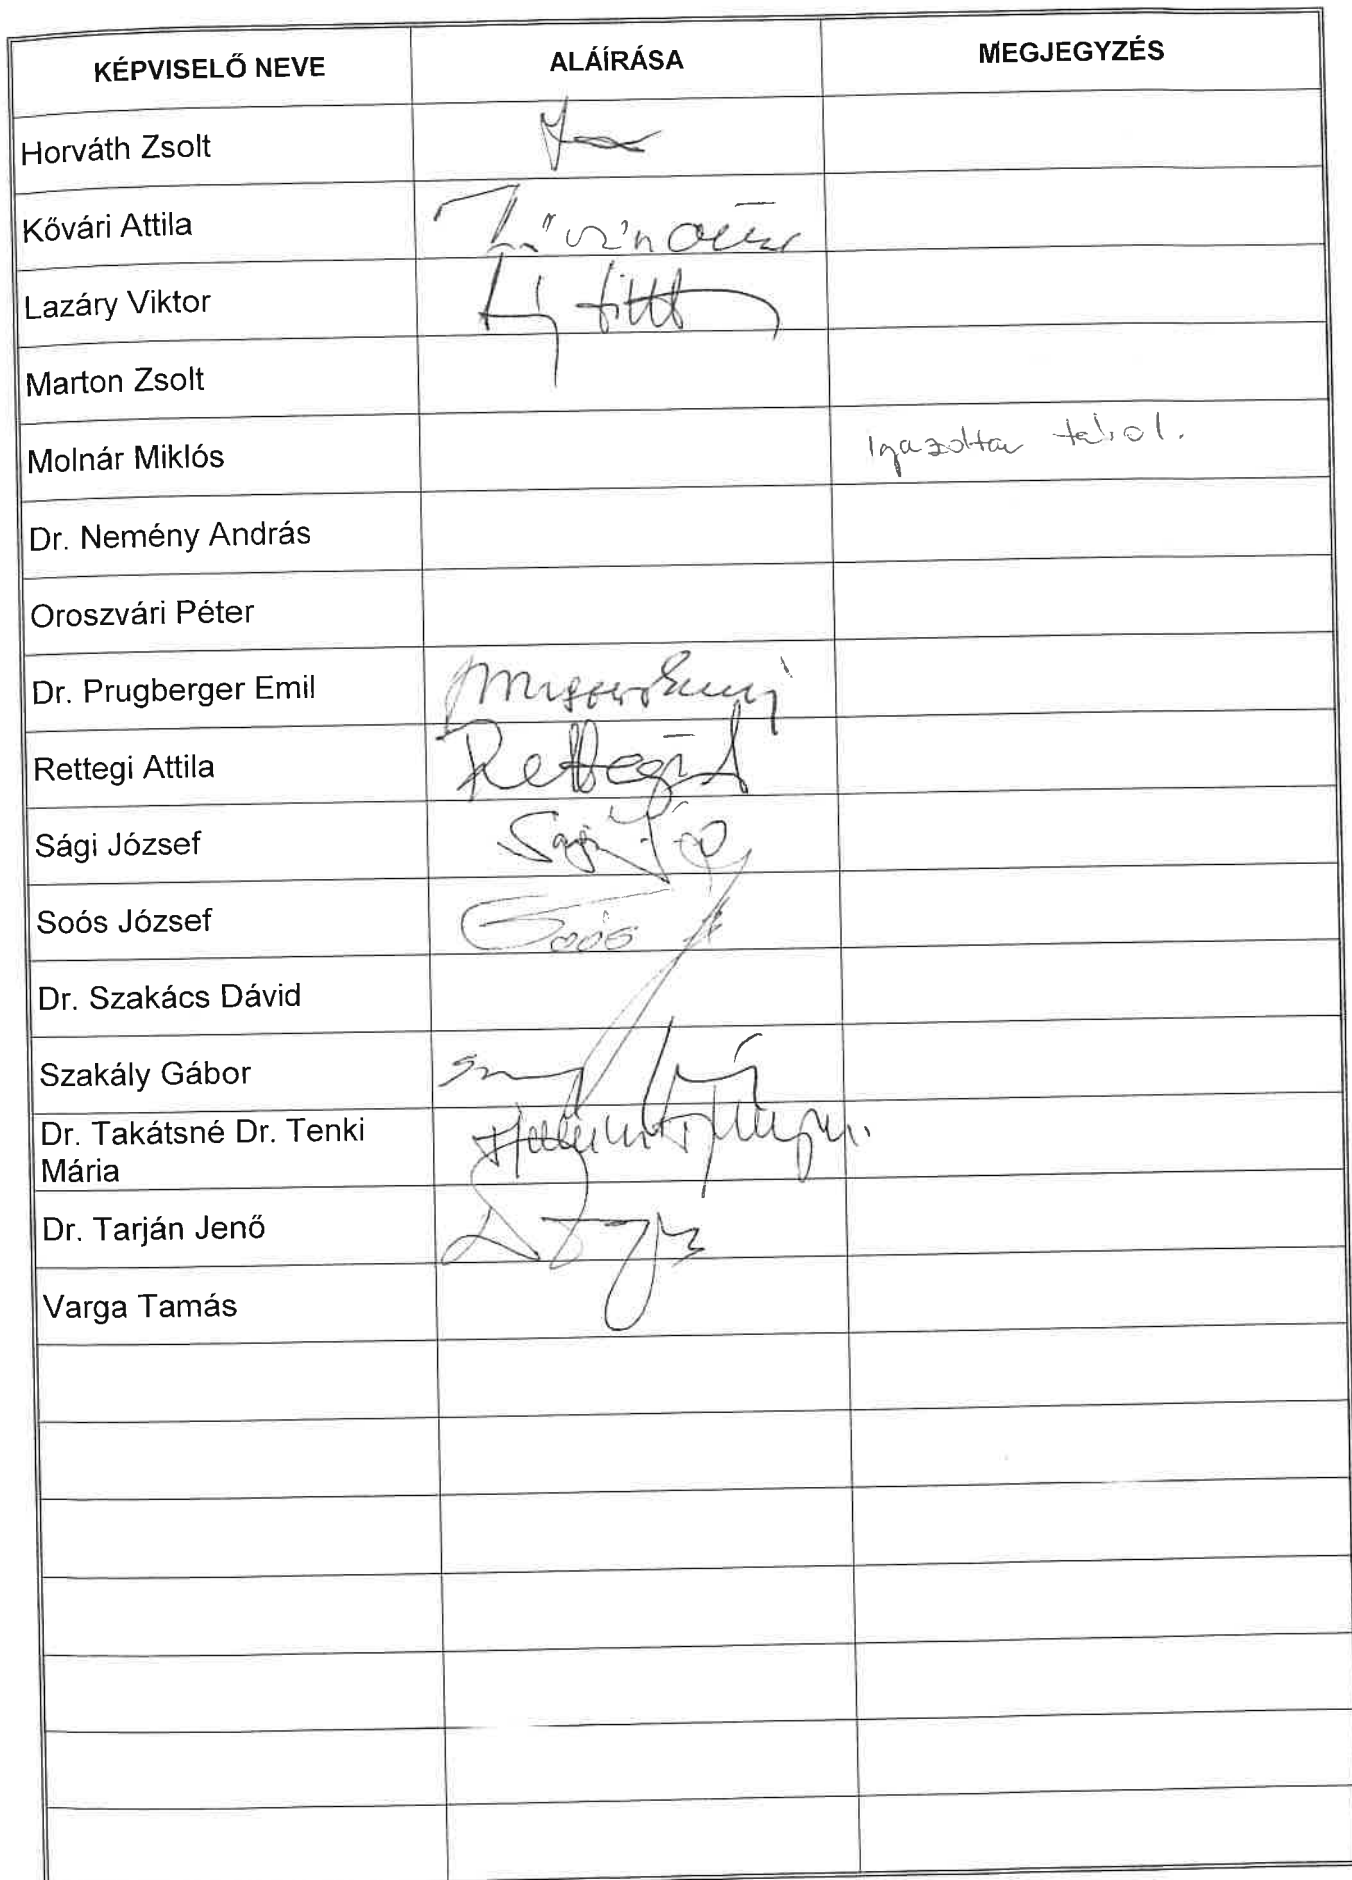 KÉPVISELŐ NEVE ALÁÍRÁSA MEGJEGYZÉS
Horváth Zsolt
Kővári Attila
Lazáry Viktor
Marton Zsolt
Molnár Miklós Igazoltan távol.
Dr. Nemény András
Oroszvári Péter
Dr. Prugberger Emil
Rettegi Attila Rettegi A
Sági József Sági
Soós József Soós
Dr. Szakács Dávid
Szakály Gábor
Dr. Takátsné Dr. Tenki
Mária
Dr. Tarján Jenő
Varga Tamás